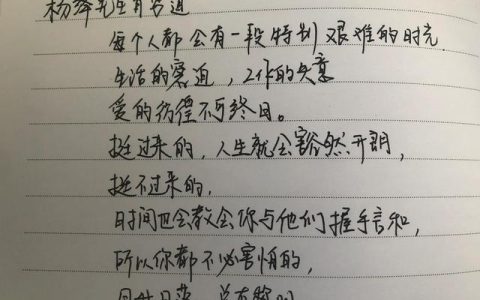 杨绛先生有言道
每个人都会有一段特别艰难的时光
生活的窘迫，工作的失意
爱的彷徨不可终日。
挺过来的，人生就会豁然开朗，
挺不过来的，
时间也会教会你与他们握手言和，
所以你都不必害怕的，